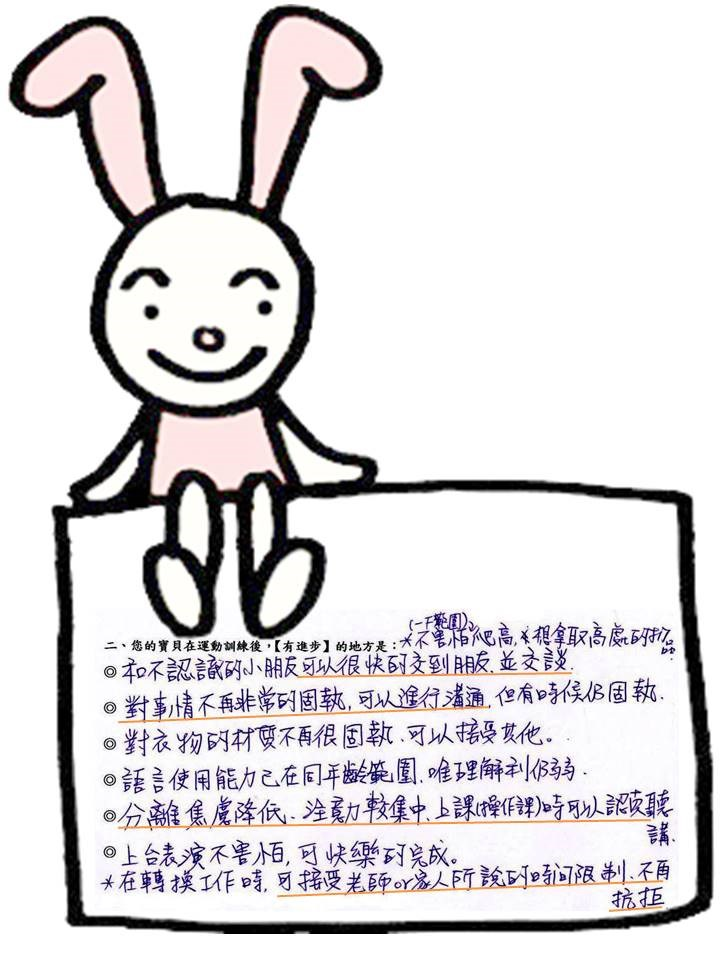 (一下範圍)
二、您的寶貝在運動訓練後,【有進步】的地方是: *不害怕爬高,想拿取高處的物品
◎和不認識的小朋友可以很快的交到朋友、並交談.
◎對事情不再非常的固執,可以進行溝通,但有時侯仍固執.
◎對衣物的材質不再很固執、可以接受其他。
◎語言使用能力已在同年齡範圍、唯理解利仍弱.
◎分離焦慮降低、注意力較集中、上課(操作課)時可以認真聽
講、
◎上台表演不害怕,可快樂的完成。
*在轉換工作時,可接受老師or家人所說的時間限制、不再
抗拒